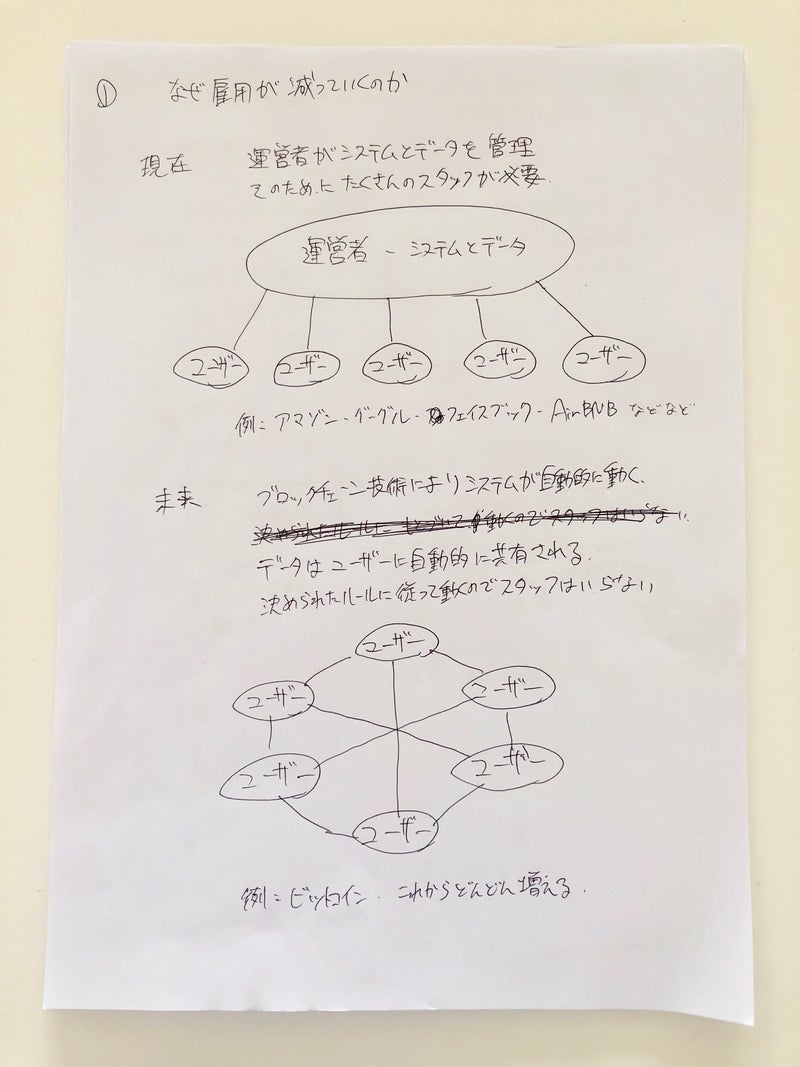 ① なぜ雇用が減っていくのか
現在 運営者がシステムとデータを管理
そのためにたくさんのスタッフが必要.
運営者 - システムとデータ
ユーザー ユーザー ユーザー ユーザー ユーザー
例: アマゾン・グーグル・フェイスブック・AirBNB などなど
未来 ブロックチェーン技術によりシステムが自動的に動く.
決められたルールにもとづいて動くのでスタッフはいらない.
データはユーザーに自動的に共有される.
決められたルールに従って動くのでスタッフはいらない
ユーザー
ユーザー ユーザー
ユーザー ユーザー
ユーザー
例: ビットコイン. これからどんどん増える.